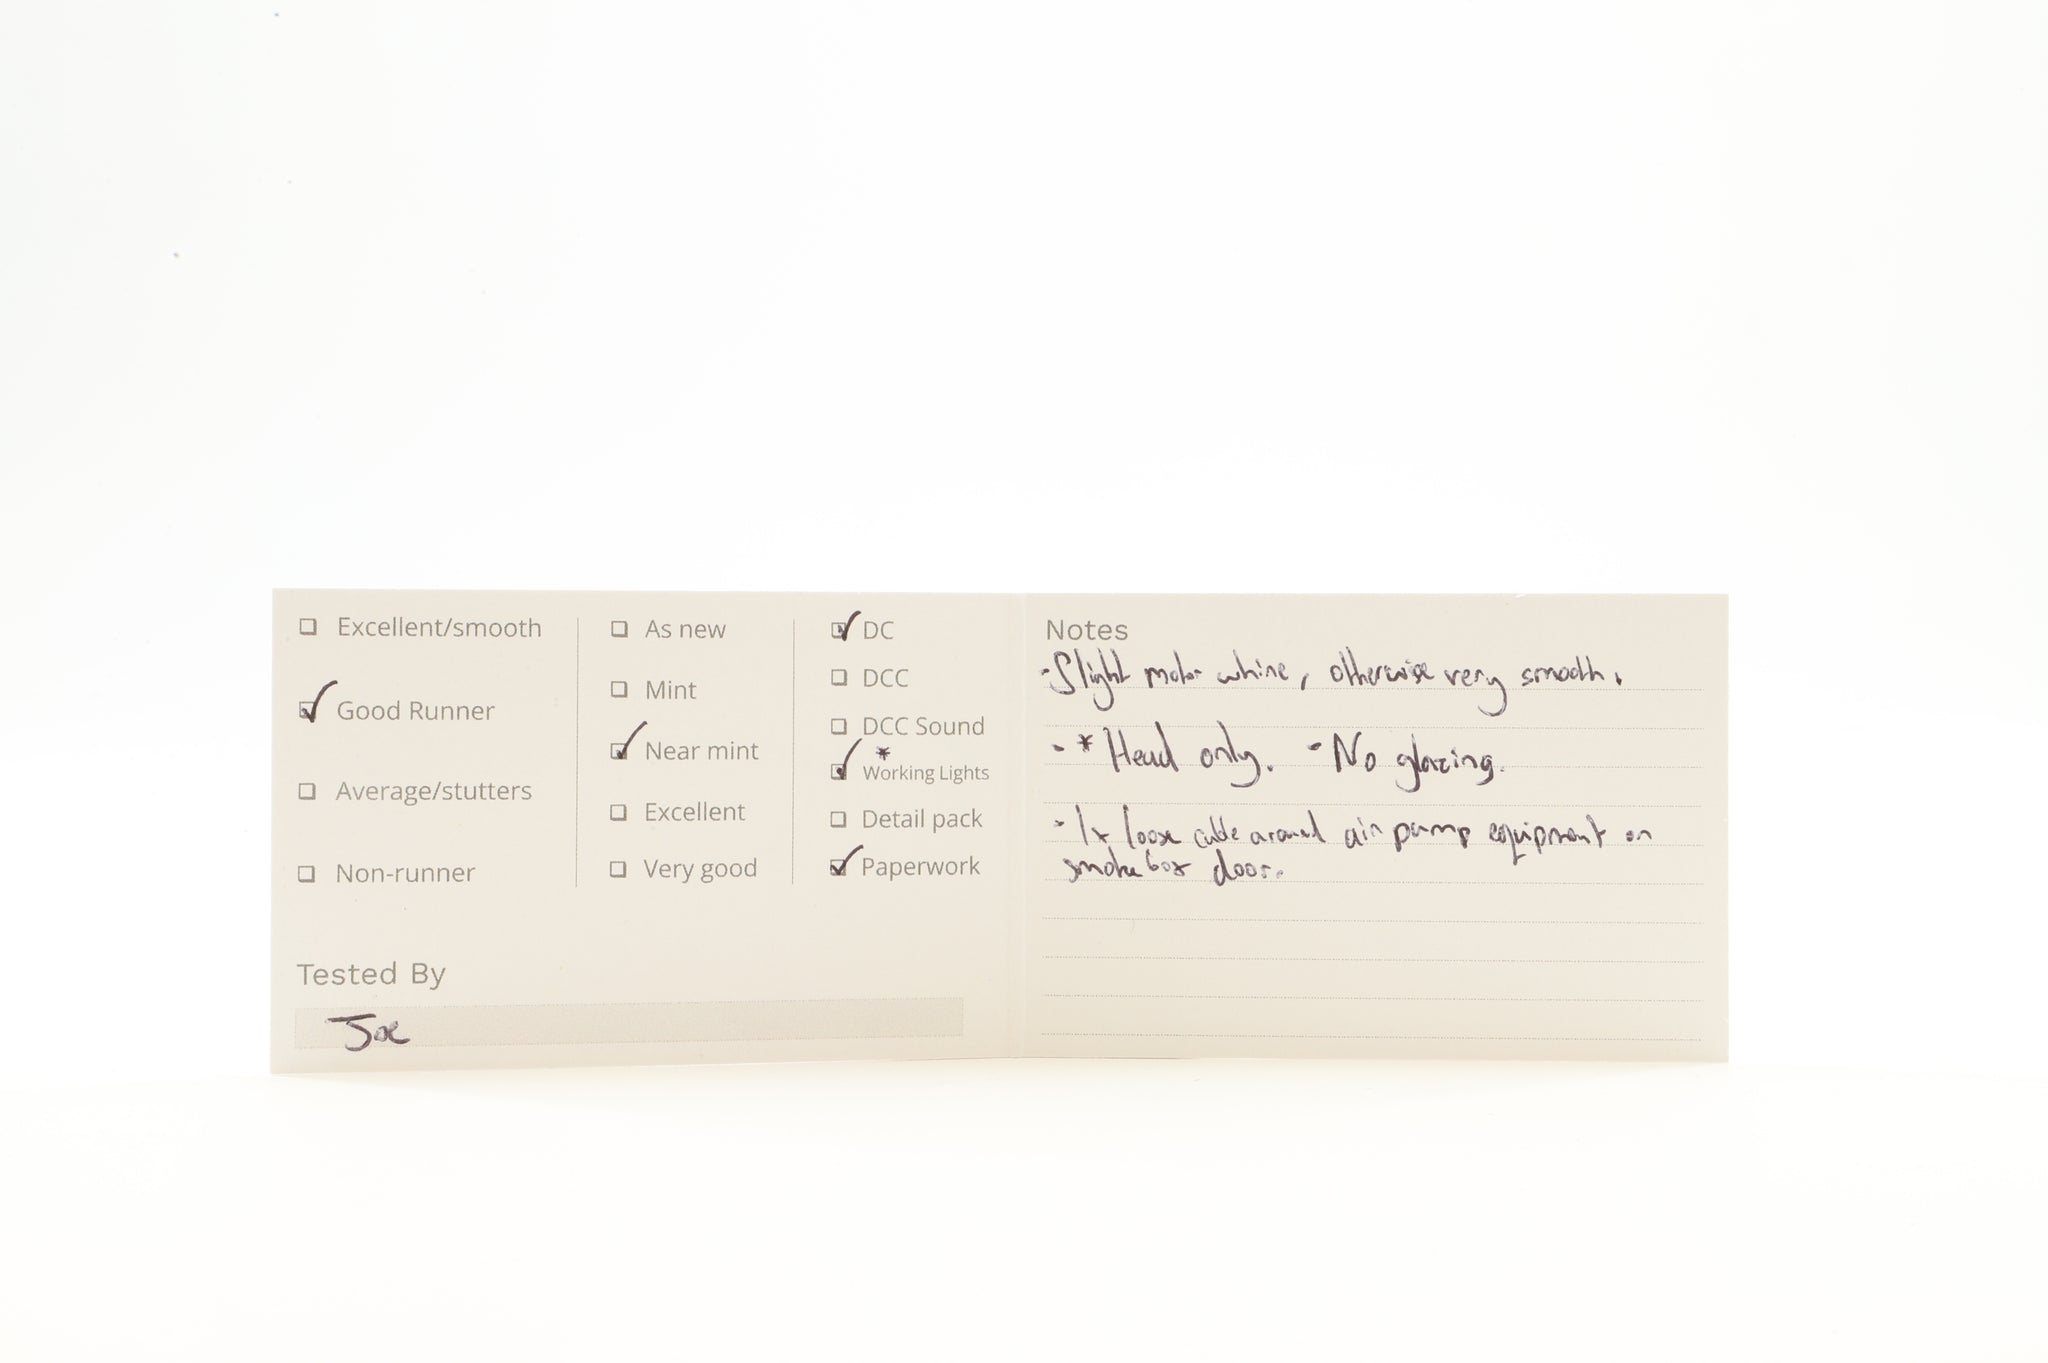 ☐ Excellent/smooth
☑ Good Runner
☐ Average/stutters
☐ Non-runner
☐ As new
☐ Mint
☑ Near mint
☐ Excellent
☐ Very good
☑ DC
☐ DCC
☐ DCC Sound
*
☑ Working Lights
☐ Detail pack
☑ Paperwork
Tested By
Joe
Notes
- Slight motor whine, otherwise very smooth.
- * Head only. - No glazing.
- 1x loose cable around air pump equipment on
smokebox door.